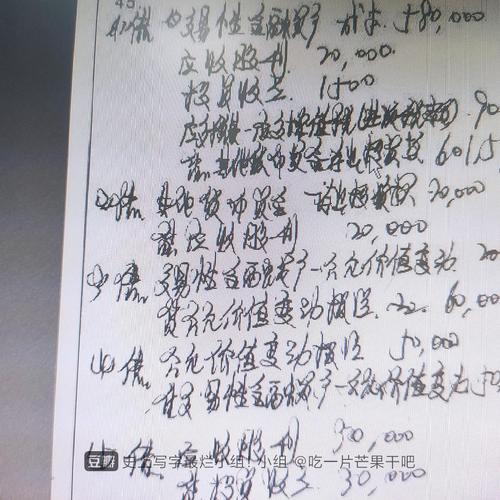 45
(1)借:交易性金融资产 成本 580,000
应收股利 20,000
投资收益 1500
应交税费—应交增值税(进项税额) 90
贷:其他货币资金—存出投资款 6015
(2)借:其他货币资金—存出投资款 20,000
贷:应收股利 20,000
(3)借:交易性金融资产—公允价值变动 20
贷:公允价值变动损益 60,000
(4)借:公允价值变动损益 50,000
贷:交易性金融资产—公允价值变动 50
借:应收股利 30,000
贷:投资收益 30,000
豆瓣 史上写字最烂小组!小组 @吃一片芒果干吧